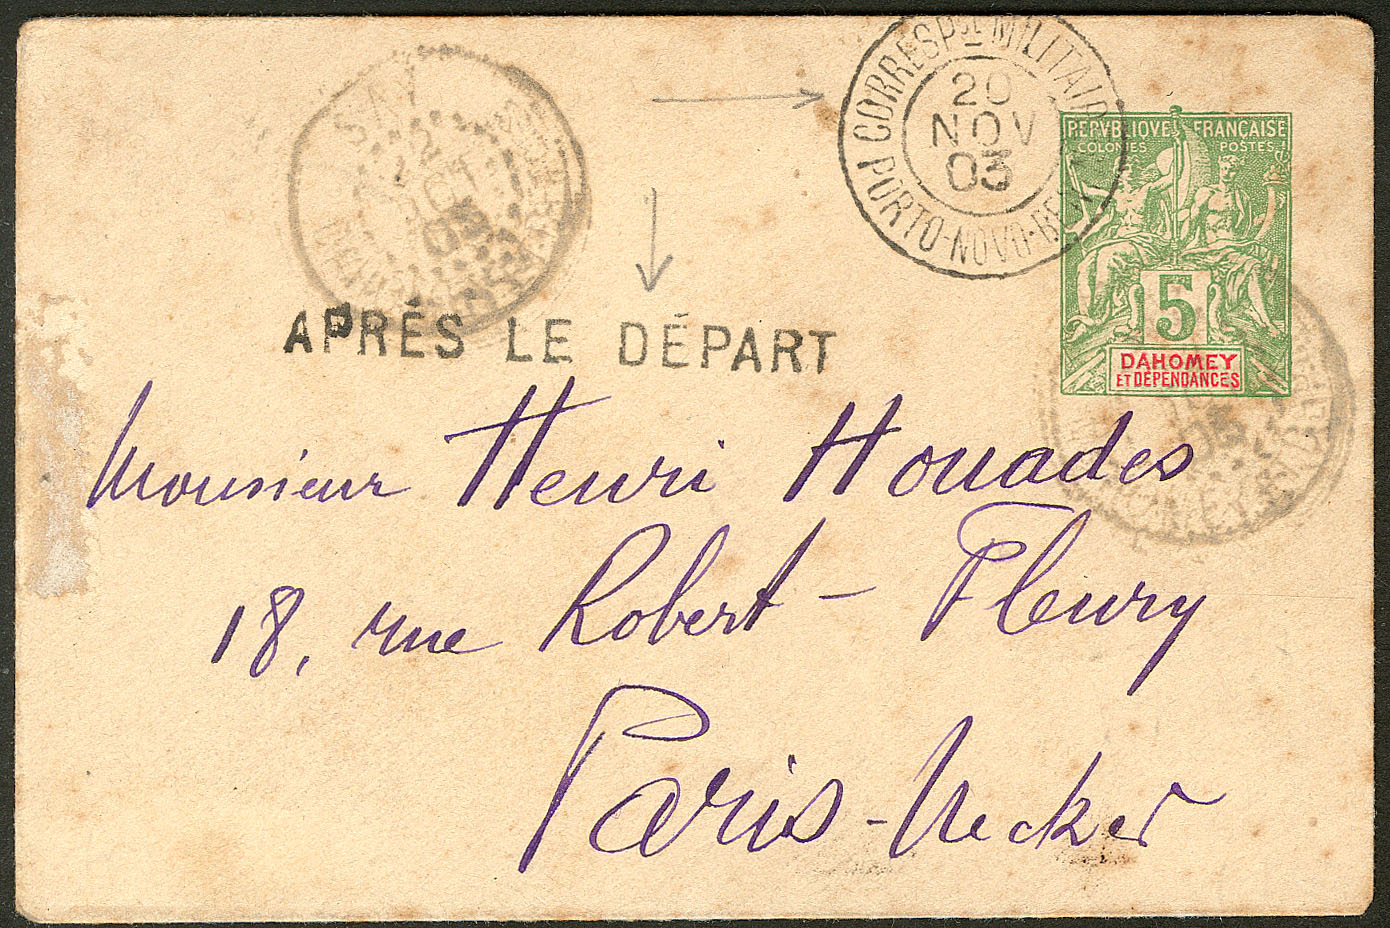 CORRESPCE MILITAIRE
20
NOV
03
PORTO-NOVO-BENIN
SAY
OCT
03
REPVBLIQVE FRANÇAISE
COLONIES POSTES
5
DAHOMEY
ET DÉPENDANCES
APRÈS LE DÉPART
Monsieur Henri Houades
18, rue Robert-Fleury
Paris-Necker